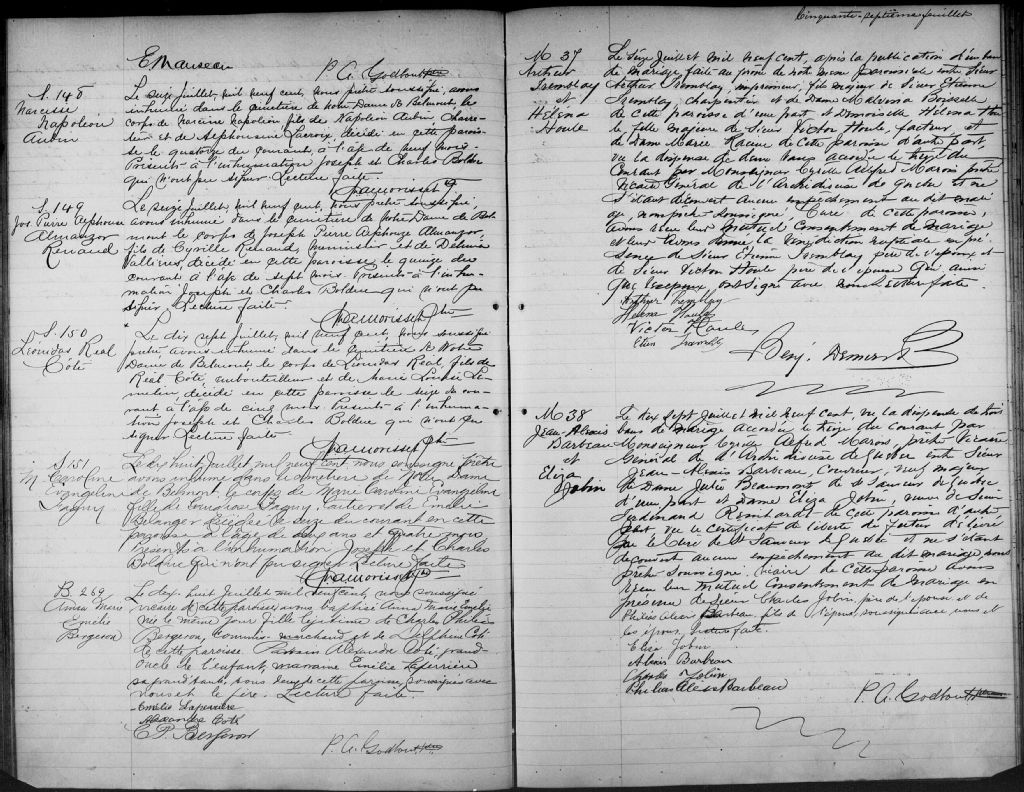 E Manseau
P. A. Godbout ptre
S. 148
Narcisse
Napoléon
Aubin
Le seize Juillet, mil neuf cent, nous prêtre soussigné, avons
inhumé dans le cimetière de Notre Dame de Belmont, le
corps de Narcisse Napoléon fils de Napoléon Aubin, charre-
tier et de Alphonsine Lacroix décédé en cette parois-
se le quatorze du courant, à l'age de neuf mois.
Présents à l'inhumation Joseph et Charles Bolduc
qui n'ont pu signer Lecture faite.
S. 149
Jos Pierre Alphonse
Almanzor
Renaud
Le seize Juillet, mil neuf cent, nous prêtre soussigné,
avons inhumé dans le cimetière de Notre Dame de Bel-
mont le corps de Joseph Pierre Alphonse Almanzor,
fils de Cyrille Renaud, menuisier et de Delvina
Vallières, décédé en cette paroisse le quinze du
courant à l'age de sept mois. Présents à l'inhu-
mation Joseph et Charles Bolduc qui n'ont pu
signer. Lecture faite.
S. 150
Léonidas Réal
Côté
Le dix sept Juillet, mil neuf cent, nous soussigné
prêtre, avons inhumé dans le cimetière de Notre
Dame de Belmont, le corps de Léonidas Réal, fils de
Réal Côté, embouteilleur et de Marie Louise Le-
melin, décédé en cette paroisse le seize du cou-
rant à l'age de cinq mois. Présents à l'inhuma-
tion Joseph et Charles Bolduc qui n'ont pu
signer Lecture faite.
S. 151
M. Caroline
Evangeline
Pagny
Le dix huit Juillet, mil neuf cent nous soussigné, prêtre
avons inhumé dans le cimetière de Notre Dame
de Belmont, le corps de Marie Caroline Evangeline
fille de Pagny, et de
Bélanger décédée le seize du courant en cette
paroisse à l'age de ans et quatre mois
Présents à l'inhumation Joseph et Charles
Bolduc qui n'ont pu signer Lecture faite
B. 269
Anna Marie
Emélie
Bergeron
Le dix-huit Juillet mil neuf cent, nous soussigné
vicaire de cette paroisse avons baptisé Anna Marie Emélie
née le même jour fille légitime de Charles Philéas
Bergeron, commis-marchand et de Delphine Coté
de cette paroisse. Parrain Alexandre Coté, grand
oncle de l'enfant, marraine Emélie Laperrière
sa grand'tante, tous deux de cette paroisse, soussignés avec
nous et le père. Lecture faite
Emélie Laperrière
Alexandre Coté
C. P. Bergeron
P. A. Godbout ptre
Cinquante-septième feuillet
M 37
Arthur
Tremblay
et
Héléna
Houle
Le seize Juillet mil neuf cent, après la publication d'un ban
de mariage faite au prône de notre messe paroissiale entre Sieur
Arthur Tremblay, imprimeur, fils majeur de Sieur Etienne
Tremblay, charpentier et de Dame Malvina Boisselle
de cette paroisse d'une part, et Demoiselle Héléna Hou
le fille majeure de Sieur Victor Houle, facteur et
de Dame Marie Racine de cette paroisse d'autre part,
vu la dispense de deux bans accordée le treize du
courant par Monseigneur Cyrille Alfred Marois prêtre
Vicaire Général de l'Archidiocèse de Québec et ne
s'étant découvert aucun empêchement au dit mari-
age, nous prêtre soussigné, Curé de cette paroisse,
avons reçu leur mutuel consentement de mariage
et leur avons donné la bénédiction nuptiale en pré-
sence de Sieur Etienne Tremblay père de l'époux et
de Sieur Victor Houle père de l'épouse qui ainsi
que les époux, ont signé avec nous. Lecture faite.
Arthur Tremblay
Helena Houle
Victor Houle
Etien Tremblly
Benj. Demers Ptre
M 38
Jean-Alexis
Barbeau
et
Eliza
Jobin
Le dix sept Juillet mil neuf cent, vu la dispense de trois
bans de mariage accordée le treize du courant par
Monseigneur Cyrille Alfred Marois, prêtre Vicaire
Général de l'Archidiocèse de Québec entre Sieur
Jean-Alexis Barbeau, couvreur, veuf majeur
de Dame Julie Beaumont de St Sauveur de Québec
d'une part et Dame Eliza Jobin, veuve de Sieur
Ferdinand de cette paroisse d'autre
part, vu le certificat de liberté du futur délivré
par le Curé de St Sauveur de Québec et ne s'étant
découvert aucun empêchement au dit mariage, nous
prêtre soussigné, vicaire de cette paroisse avons
reçu leur mutuel consentement de mariage en
présence de Sieurs Charles Jobin, père de l'épouse et de
Philéas Barbeau fils de l'époux, soussignés avec nous et
les époux. Lecture faite.
Eliza Jobin
Alexis Barbeau
Charles Jobin
Philéas Barbeau
P. A. Godbout ptre